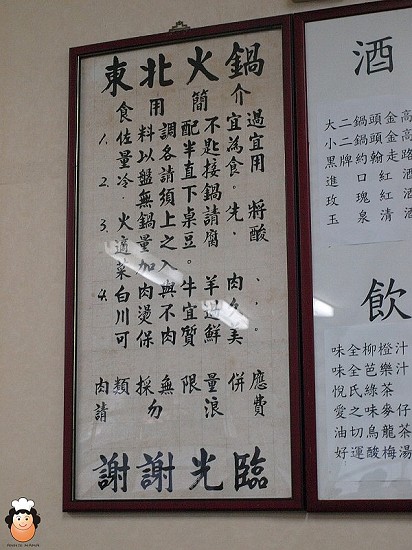 東北火鍋
食用簡介
1. 佐料調配不宜過
量以各半匙為宜
2. 冷盤請直接食用
無須下鍋。
3. 火鍋上桌請先將
適量之豆腐、酸
菜加入。
白肉與牛羊肉、
川燙不宜過久。
可保肉質鮮美。
4. 肉類採無限量供應
請勿浪費
謝謝光臨
酒
大二鍋頭金高
小二鍋頭金高
黑牌約翰走路
進口紅酒
玫瑰紅酒
玉泉清酒
飲
味全柳橙汁
味全芭樂汁
悅氏綠茶
愛之味麥仔
油切烏龍茶
好運酸梅湯